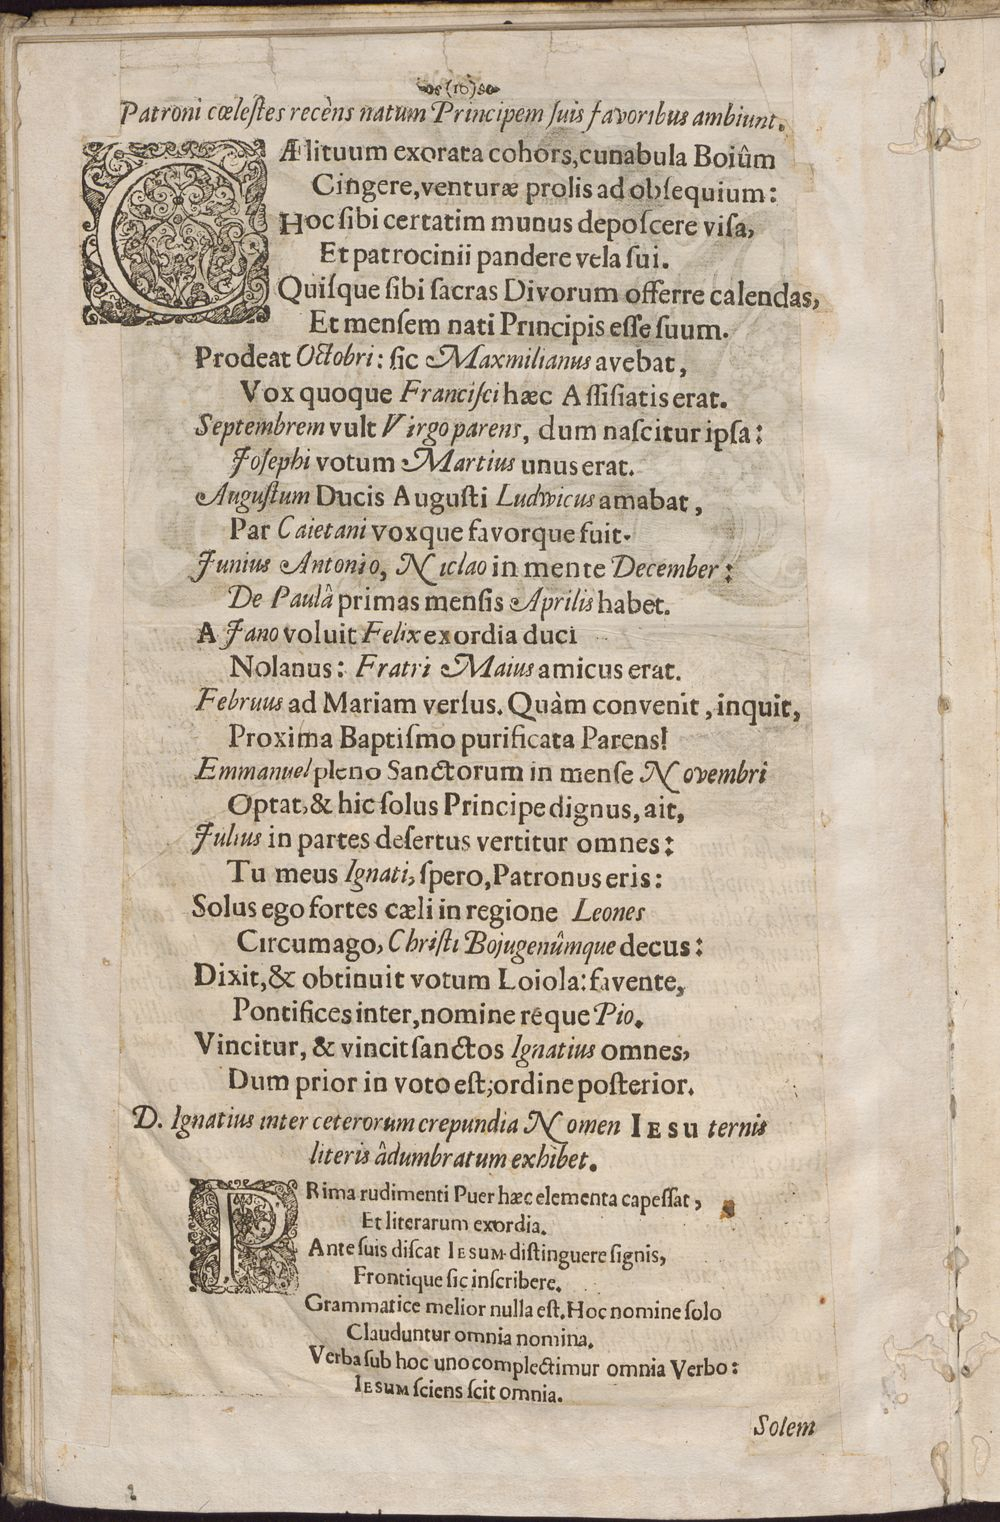 (16)
Patroni cœleſtes recèns natum Principem ſuis favoribus ambiunt.
CÆlituum exorata cohors, cunabula Boiûm
Cingere, venturæ prolis ad obſequium:
Hoc ſibi certatim munus depoſcere viſa,
Et patrocinii pandere vela ſui.
Quiſque ſibi ſacras Divorum offerre calendas,
Et menſem nati Principis eſſe ſuum.
Prodeat Octobri: ſic Maxmilianus avebat,
Vox quoque Franciſci hæc Aſſiſiatis erat.
Septembrem vult Virgo parens, dum naſcitur ipſa:
Joſephi votum Martius unus erat.
Auguſtum Ducis Auguſti Ludwicus amabat,
Par Caietani voxque favorque fuit.
Junius Antonio, Niclao in mente December:
De Paulâ primas mensis Aprilis habet.
A Jano voluit Felix exordia duci
Nolanus: Fratri Maius amicus erat.
Februus ad Mariam verſus. Quàm convenit, inquit,
Proxima Baptiſmo purificata Parens!
Emmanuel pleno Sanctorum in menſe Novembri
Optat, & hic ſolus Principe dignus, ait,
Julius in partes deſertus vertitur omnes:
Tu meus Ignati, ſpero, Patronus eris:
Solus ego fortes cæli in regione Leones
Circumago, Chriſti Bojugenûmque decus:
Dixit, & obtinuit votum Loiola: favente,
Pontifices inter, nomine réque Pio.
Vincitur, & vincit ſanctos Ignatius omnes,
Dum prior in voto eſt; ordine poſterior.
D. Ignatius inter ceterorum crepundia Nomen IESU ternis
literis âdumbratum exhibet.
PRima rudimenti Puer hæc elementa capeſſat,
Et literarum exordia.
Ante ſuis diſcat IESUM diſtinguere ſignis,
Frontique ſic inſcribere.
Grammatice melior nulla eſt. Hoc nomine ſolo
Clauduntur omnia nomina.
Verba ſub hoc uno complectimur omnia Verbo:
IESUM ſciens ſcit omnia.
Solem